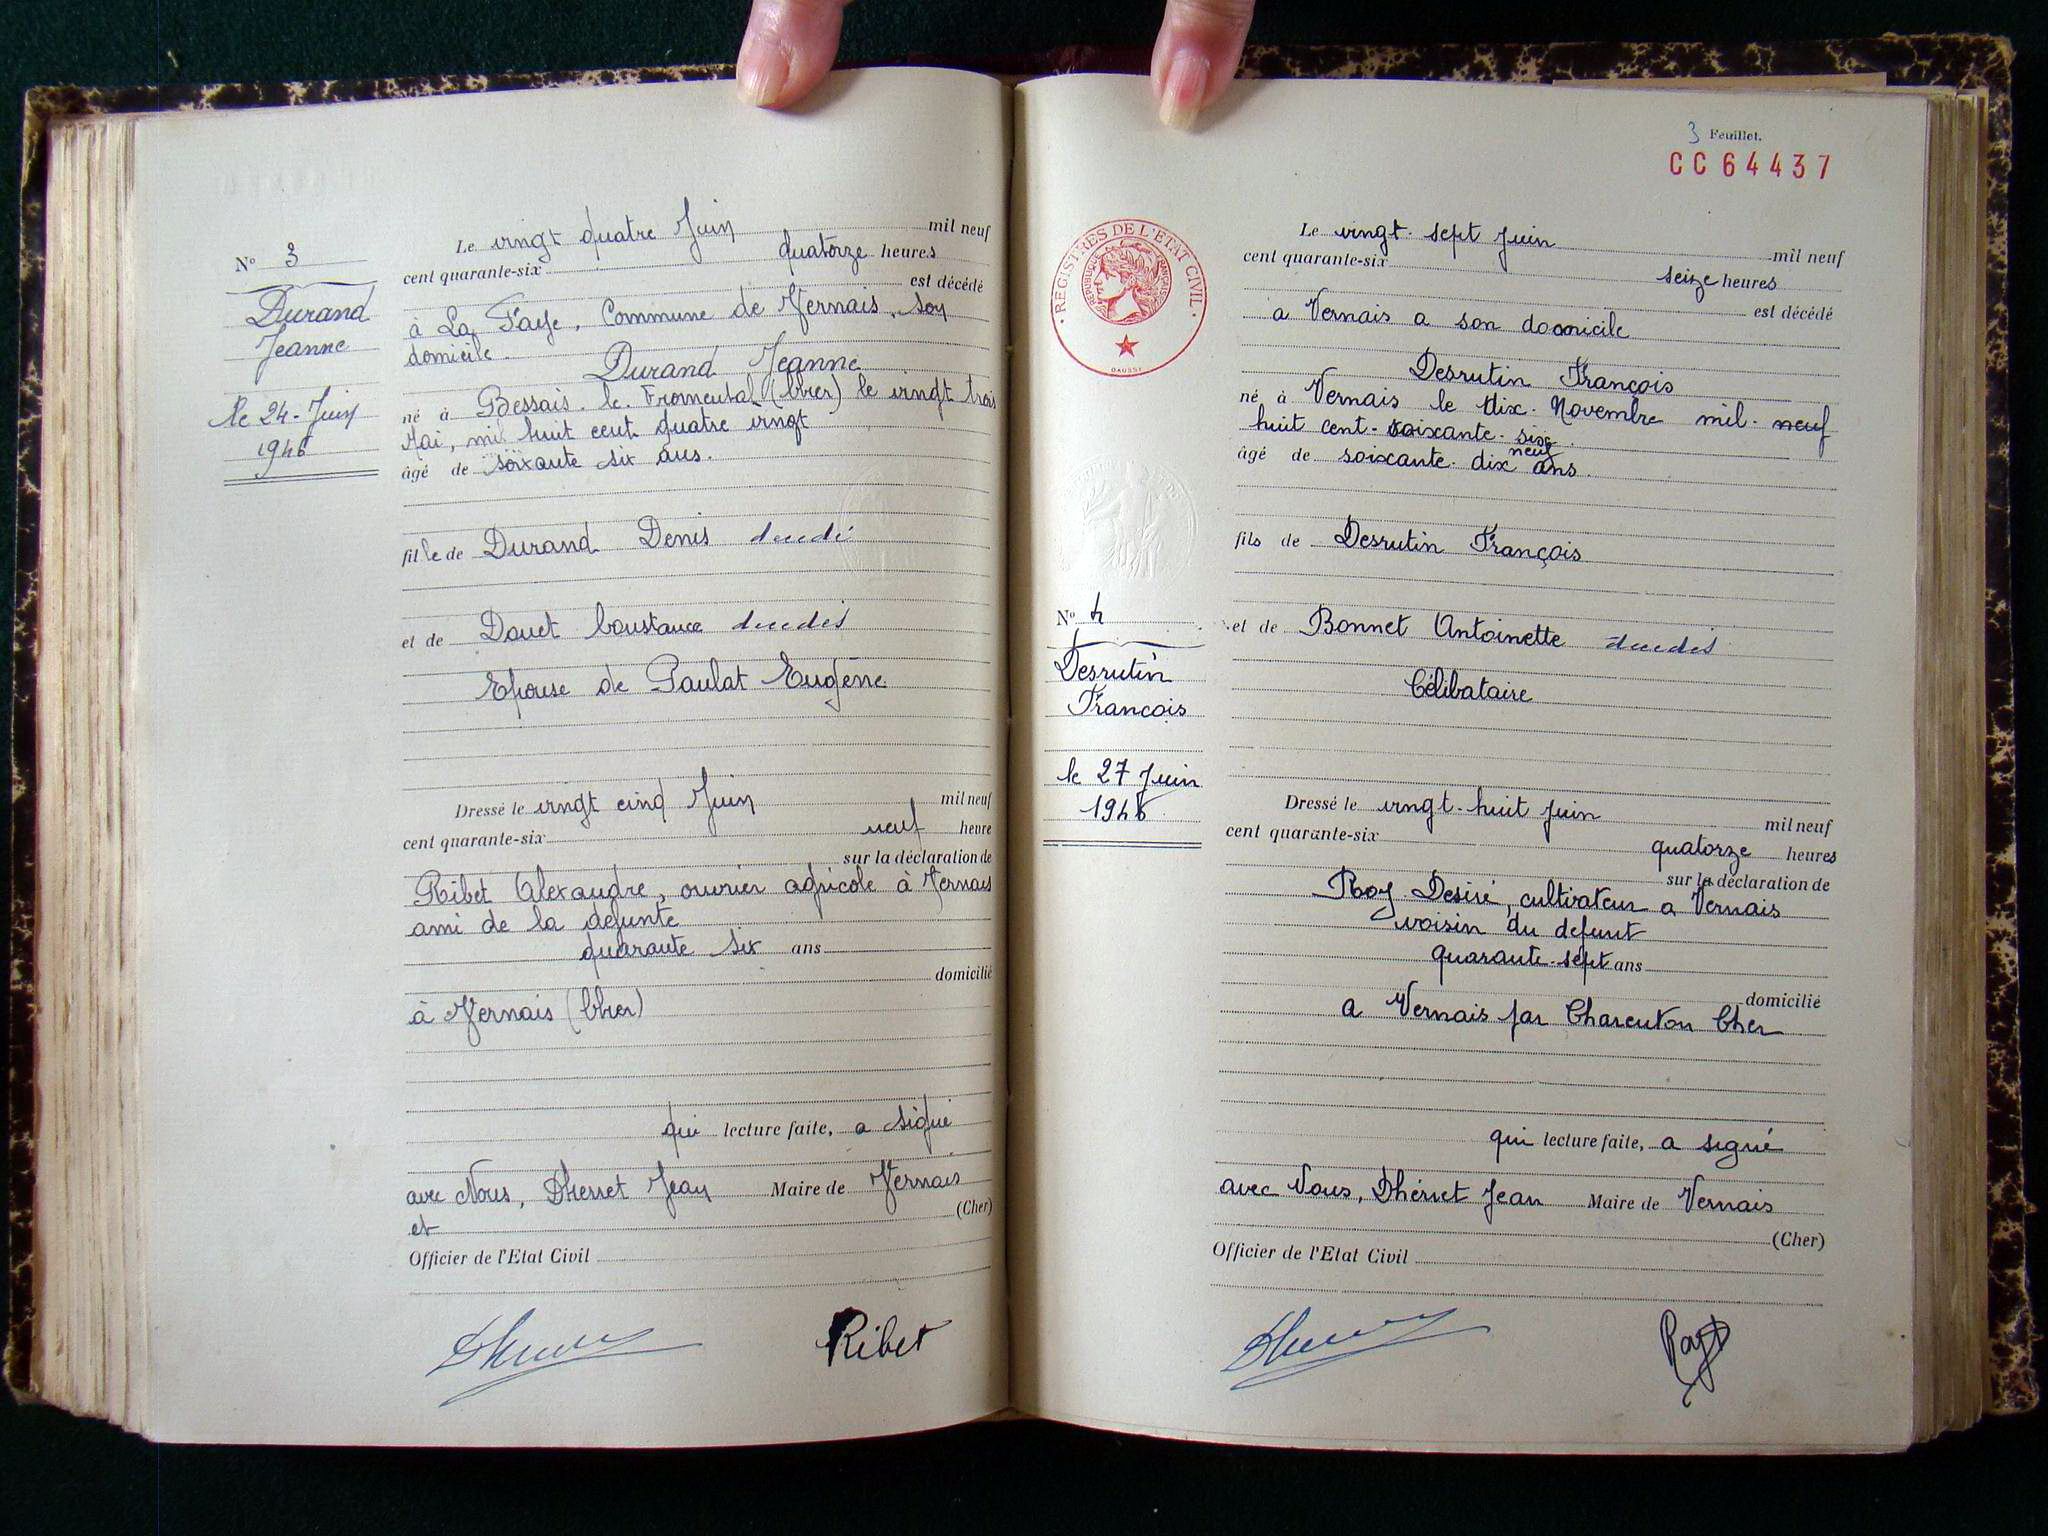 Nº 3
Durand
Jeanne
le 24 Juin
1946
Le vingt quatre Juin mil neuf
cent quarante-six quatorze heures
est décédé
à La Faye, Commune de Vernais, son
domicile
Durand Jeanne
né à Bessais-le-Fromental (Cher) le vingt trois
Mai, mil huit cent quatre vingt
âgé de soixante six ans.
fille de Durand Denis décédé
et de Douet Constance décédés
Epouse de Paulat Eugène
Dressé le vingt cinq Juin mil neuf
cent quarante-six neuf heure
sur la déclaration de
Ribet Alexandre, ouvrier agricole à Vernais
ami de la défunte
quarante six ans
domicilié
à Vernais (Cher)
qui lecture faite, a signé
avec Nous, Dherret Jean Maire de Vernais
et (Cher)
Officier de l'Etat Civil
Ribet
3 Feuillet.
CC64437
REGISTRES DE L'ETAT CIVIL
REPUBLIQUE FRANÇAISE
Nº 4
Desrutin
François
le 27 Juin
1946
Le vingt-sept Juin mil neuf
cent quarante-six seize heures
est décédé
a Vernais a son domicile
Desrutin François
né à Vernais le dix-Novembre mil-neuf
huit cent-soixante-six
neuf
âgé de soixante-dix ans.
fils de Desrutin François
et de Bonnet Antoinette décédés
Célibataire
Dressé le vingt-huit Juin mil neuf
cent quarante-six quatorze heures
sur la déclaration de
Roy Desiré, cultivateur a Vernais
voisin du defunt
quarante-sept ans
domicilié
a Vernais par Charenton Cher
qui lecture faite, a signé
avec Nous, Dhérret Jean Maire de Vernais
(Cher)
Officier de l'Etat Civil
Roy D